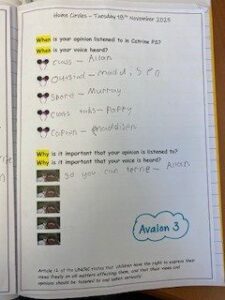 Home Circles – Tuesday 18th November 2025
When is your opinion listened to in Catrine PS?
When is your voice heard?
class – Allan
Outsiad –
Spore – Murray
class jobs – Poppy
Capten –
Why is it important that your opinion is listened to?
Why is it important that your voice is heard?
so you can – Allan
Avalon 3
Article 12 of the UNCRC states that children have the right to express their
views freely on all matters affecting them, and that their views and
opinions should be listened to and taken seriously